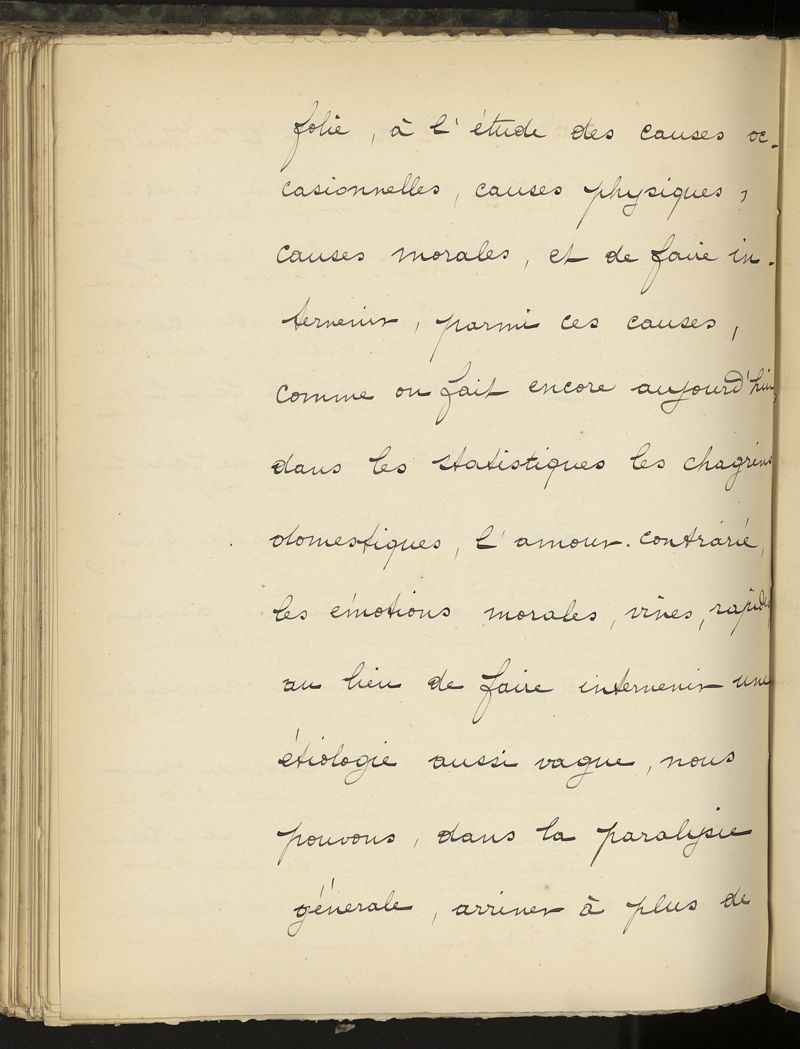 folie, à l'étude des causes oc-
casionnelles, causes physiques,
causes morales, et de faire in-
tervenir, parmi ces causes,
comme on fait encore aujourd'hui,
dans les statistiques les chagrins
domestiques, l'amour contrarié,
les émotions morales, vives, rapides
au lieu de faire intervenir une
étiologie aussi vague, nous
pouvons, dans la paralysie
générale, arriver à plus de